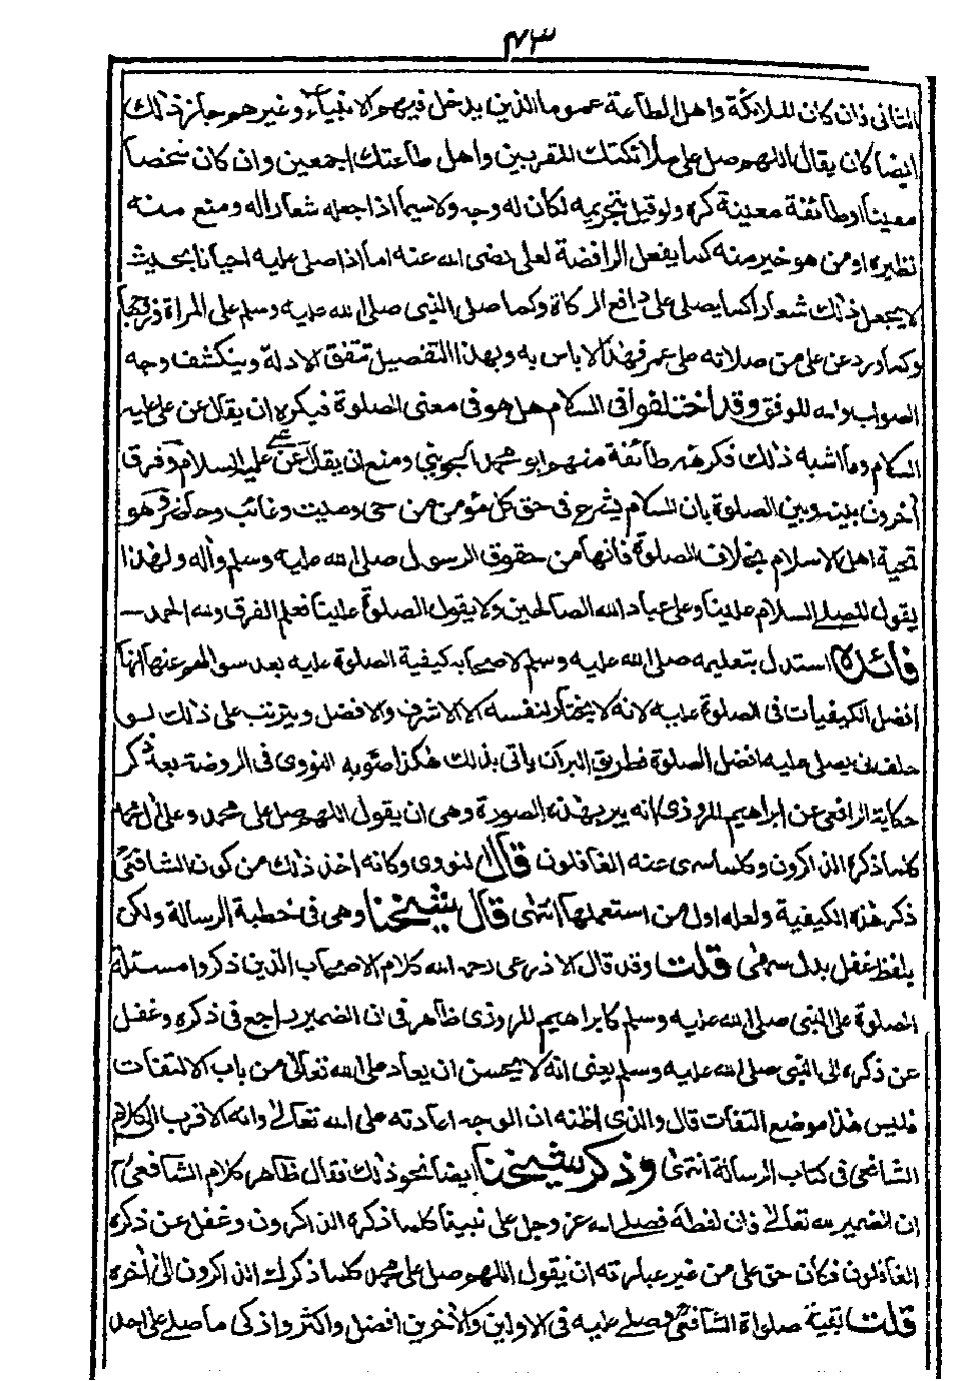 ۴۳
الثانى فان كان للملائكة واهل الطاعة عموما الذين يدخل فيهم الانبياء وغيرهم جاز ذلك
ايضا كان يقال اللهم صل على ملائكتك المقربين واهل طاعتك اجمعين وان كان شخصا
معينا او طائفة معينة كره ولو قيل بتحريمه لكان له وجه ولا سيما اذا جعله شعارا له ومنع منه
نظيره او من هو خير منه كما يفعل الرافضة لعلى رضى الله عنه اما اذا صلى عليه احيانا بحيث
لا يجعل ذلك شعارا كما يصلى على دافع الزكاة وكما صلى النبى صلى الله عليه وسلم على المراة وزوجها
وكما ورد عن على من صلاته على عمر فهذا لا باس به وبهذا التفصيل تتفق الادلة وينكشف وجه
الصواب والله الموفق وقد اختلفوا فى السلام هل هو فى معنى الصلوة فيكره ان يقال عن على عليه
السلام وما اشبه ذلك فكرهه طائفة منهم ابو محمد الجوينى ومنع ان يقال عن على عليه السلام وفرق
آخرون بينه وبين الصلوة بان السلام يشرع فى حق كل مؤمن من حى وميت وغائب وحاضر وهو
تحية اهل الاسلام بخلاف الصلوة فانها من حقوق الرسول صلى الله عليه وسلم وآله ولهذا
يقول المصلى السلام علينا وعلى عباد الله الصالحين ولا يقول الصلوة علينا فعلم الفرق ولله الحمد
فائدة استدل بتعليمه صلى الله عليه وسلم لاصحابه كيفية الصلوة عليه بعد سوالهم عنها انها
افضل الكيفيات فى الصلوة عليه لانه لا يختار لنفسه الا الاشرف والافضل ويترتب على ذلك لو
حلف ان يصلى عليه افضل الصلوة فطريق البر ان ياتى بذلك هكذا صوبه النووى فى الروضة بعد ذكر
حكاية الرافعى عن ابراهيم المروذى انه يبر بهذه الصورة وهى ان يقول اللهم صل على محمد وعلى آل محمد
كلما ذكره الذاكرون وكلما سهى عنه الغافلون قال النووى وكانه اخذ ذلك من كون الشافعى
ذكر هذه الكيفية ولعله اول من استعملها انتهى قال شيخنا وهى فى خطبة الرسالة ولكن
بلفظ غفل بدل سهى قلت وقد قال الاذرعى رحمه الله كلام الاصحاب الذين ذكروا مسئلة
الصلوة على النبى صلى الله عليه وسلم كابراهيم المروذى ظاهر فى ان الضمير راجع فى ذكره وغفل
عن ذكره الى النبى صلى الله عليه وسلم يعنى انه لا يحسن ان يعاد على الله تعالى من باب الالتفات
فليس هذا موضع التفات قال والذى اظنه ان الوجه اعادته على الله تعالى وانه الاقرب الى كلام
الشافعى فى كتاب الرسالة انتهى وذكر شيخنا ايضا نحو ذلك فقال ظاهر كلام الشافعى
ان الضمير لله تعالى فان لفظه فصلى الله عز وجل على نبينا كلما ذكره الذاكرون وغفل عن ذكره
الغافلون فكان حق على من غير عبارته ان يقول اللهم صل على محمد كلما ذكرك الذاكرون الى آخره
قلت بقية صلواة الشافعى وصلى عليه فى الاولين والآخرين افضل واكثر وازكى ما صلى على احد